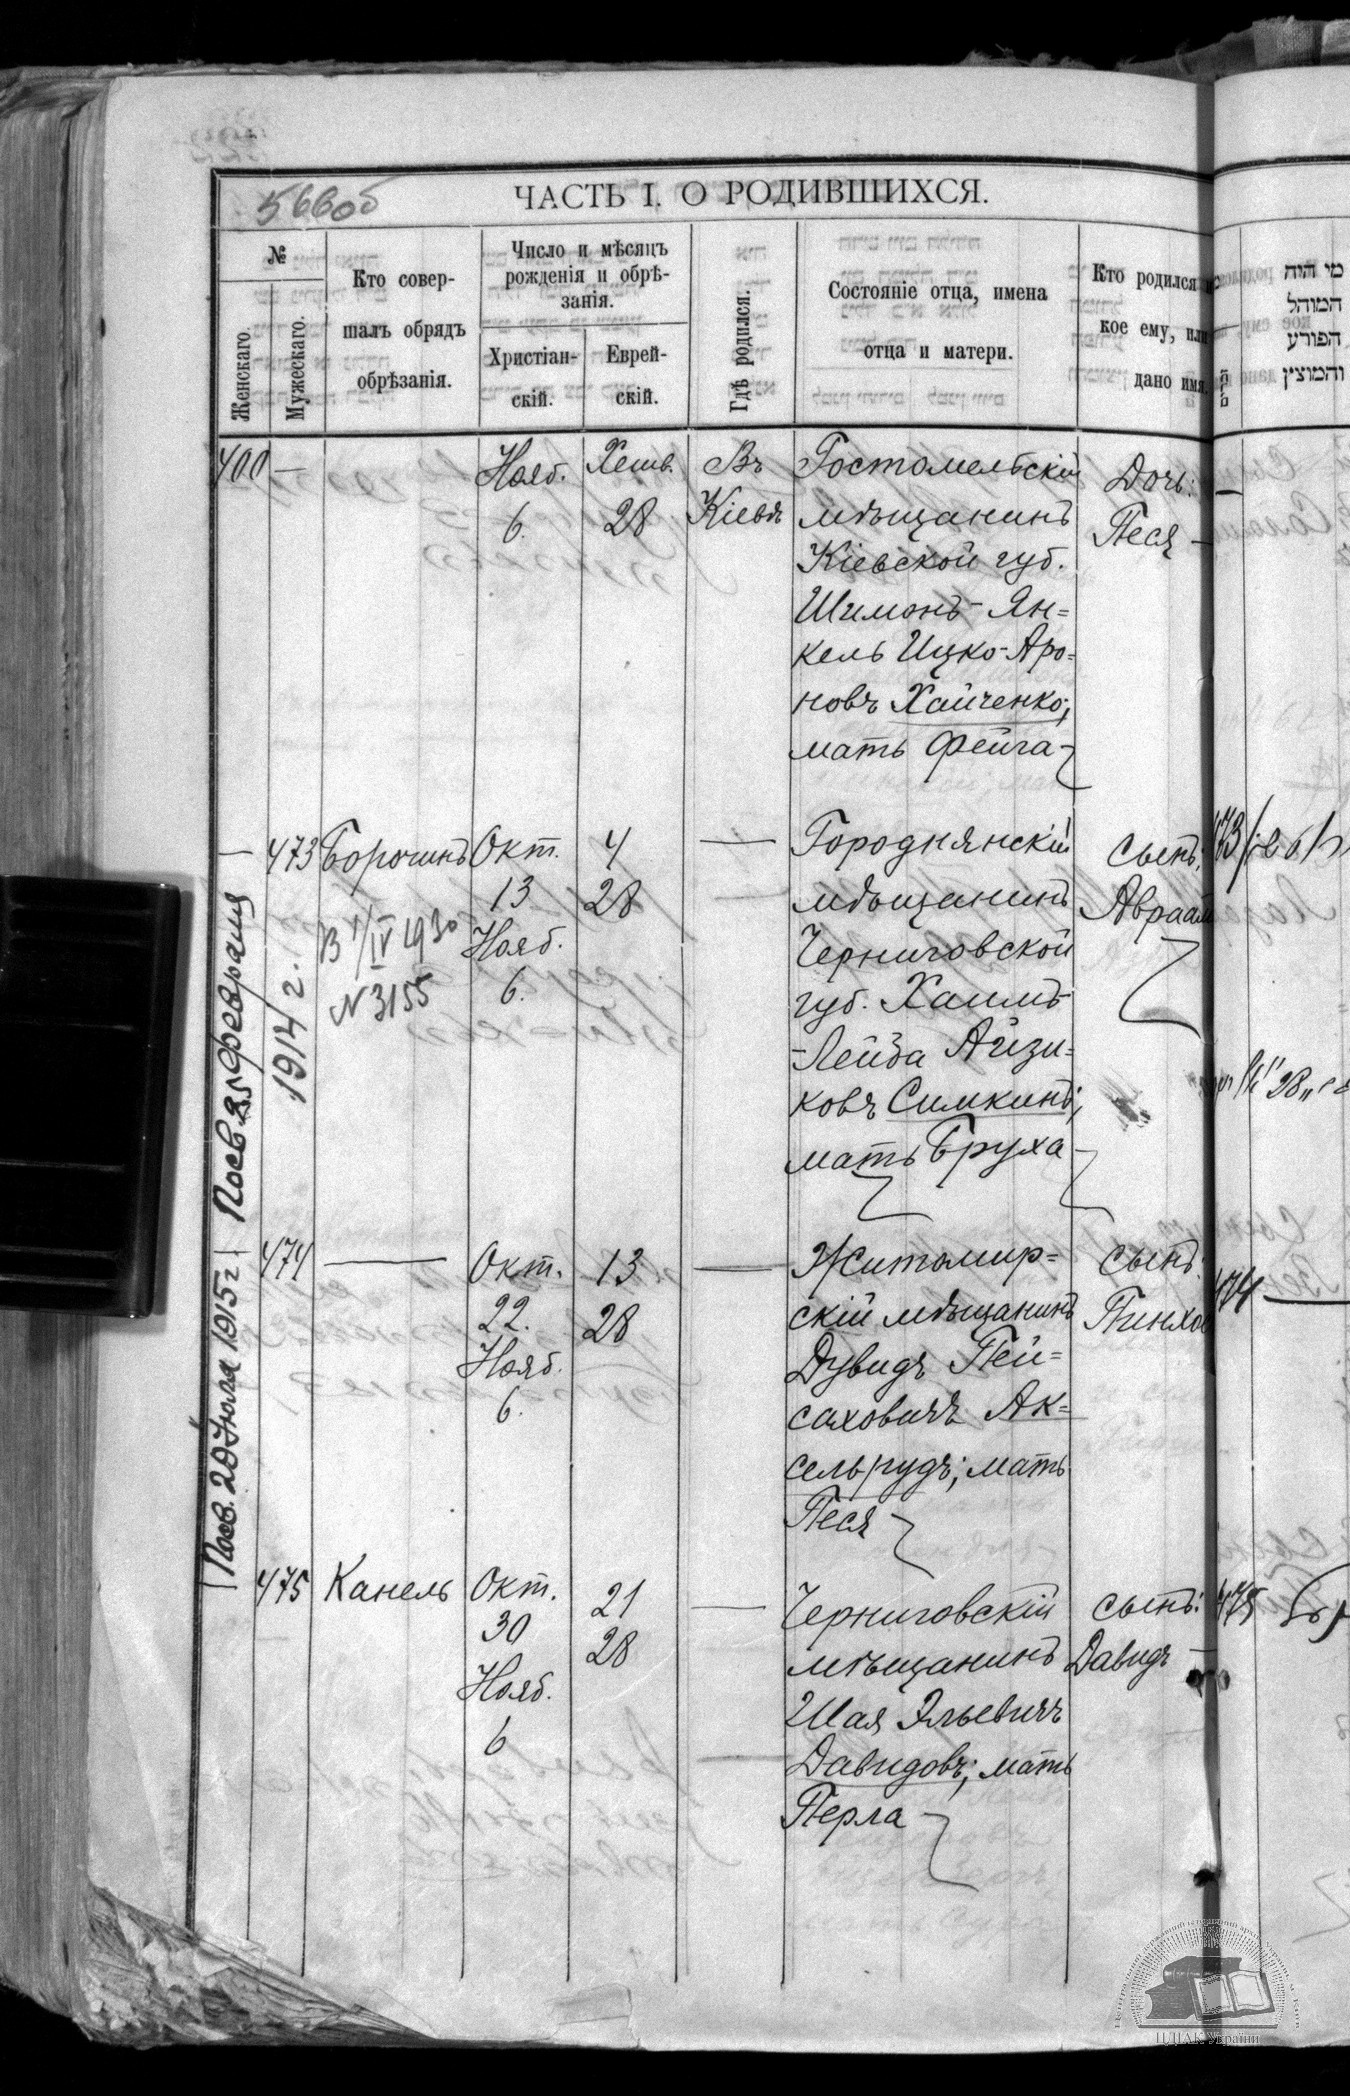 566об
ЧАСТЬ I. О РОДИВШИХСЯ.
№
Женскаго.
Мужескаго.
Кто совер-
шалъ обрядъ
обрѣзанія.
Число и мѣсяцъ
рожденія и обрѣ-
занія.
Христіан-
скій.
Еврей-
скій.
Гдѣ родился.
Состояніе отца, имена
отца и матери.
Кто родился и
кое ему, или
дано имя.
מי היה
המוהל
הפורע
והמוצץ
400
—
Нояб.
6.
Хешв.
28
Въ
Кіевѣ
Гостомельскій
мѣщанинъ
Кіевской губ.
Шимонъ-Ян=
кель Ицко-Аро=
новъ Хайченко;
мать Фейга
Дочь:
Песя
—
473
Борочинъ
В 1/IV 1930
N 3155
Окт.
13
Нояб.
6.
4
28
—
Городнянскій
мѣщанинъ
Черниговской
губ. Хаимъ-
-Лейба Айзи=
ковъ Симкинъ;
мать Бруха
сынъ:
Авраам
473
Посв. 25 февраля
1914 г.
"28"
474
—
Окт.
22.
Нояб.
6.
13
28
—
Житомир=
скій мѣщанинъ
Дувидъ Пей=
саховичъ Ак=
сельрудъ; мать
Песя
сынъ:
Пинхос
474
Посв. 20 Июля 1915 г
475
Канель
Окт.
30
Нояб.
6
21
28
—
Черниговскій
мѣщанинъ
Шая Эльевичъ
Давидовъ; мать
Перла
сынъ:
Давидъ
475
ЦДІАК України